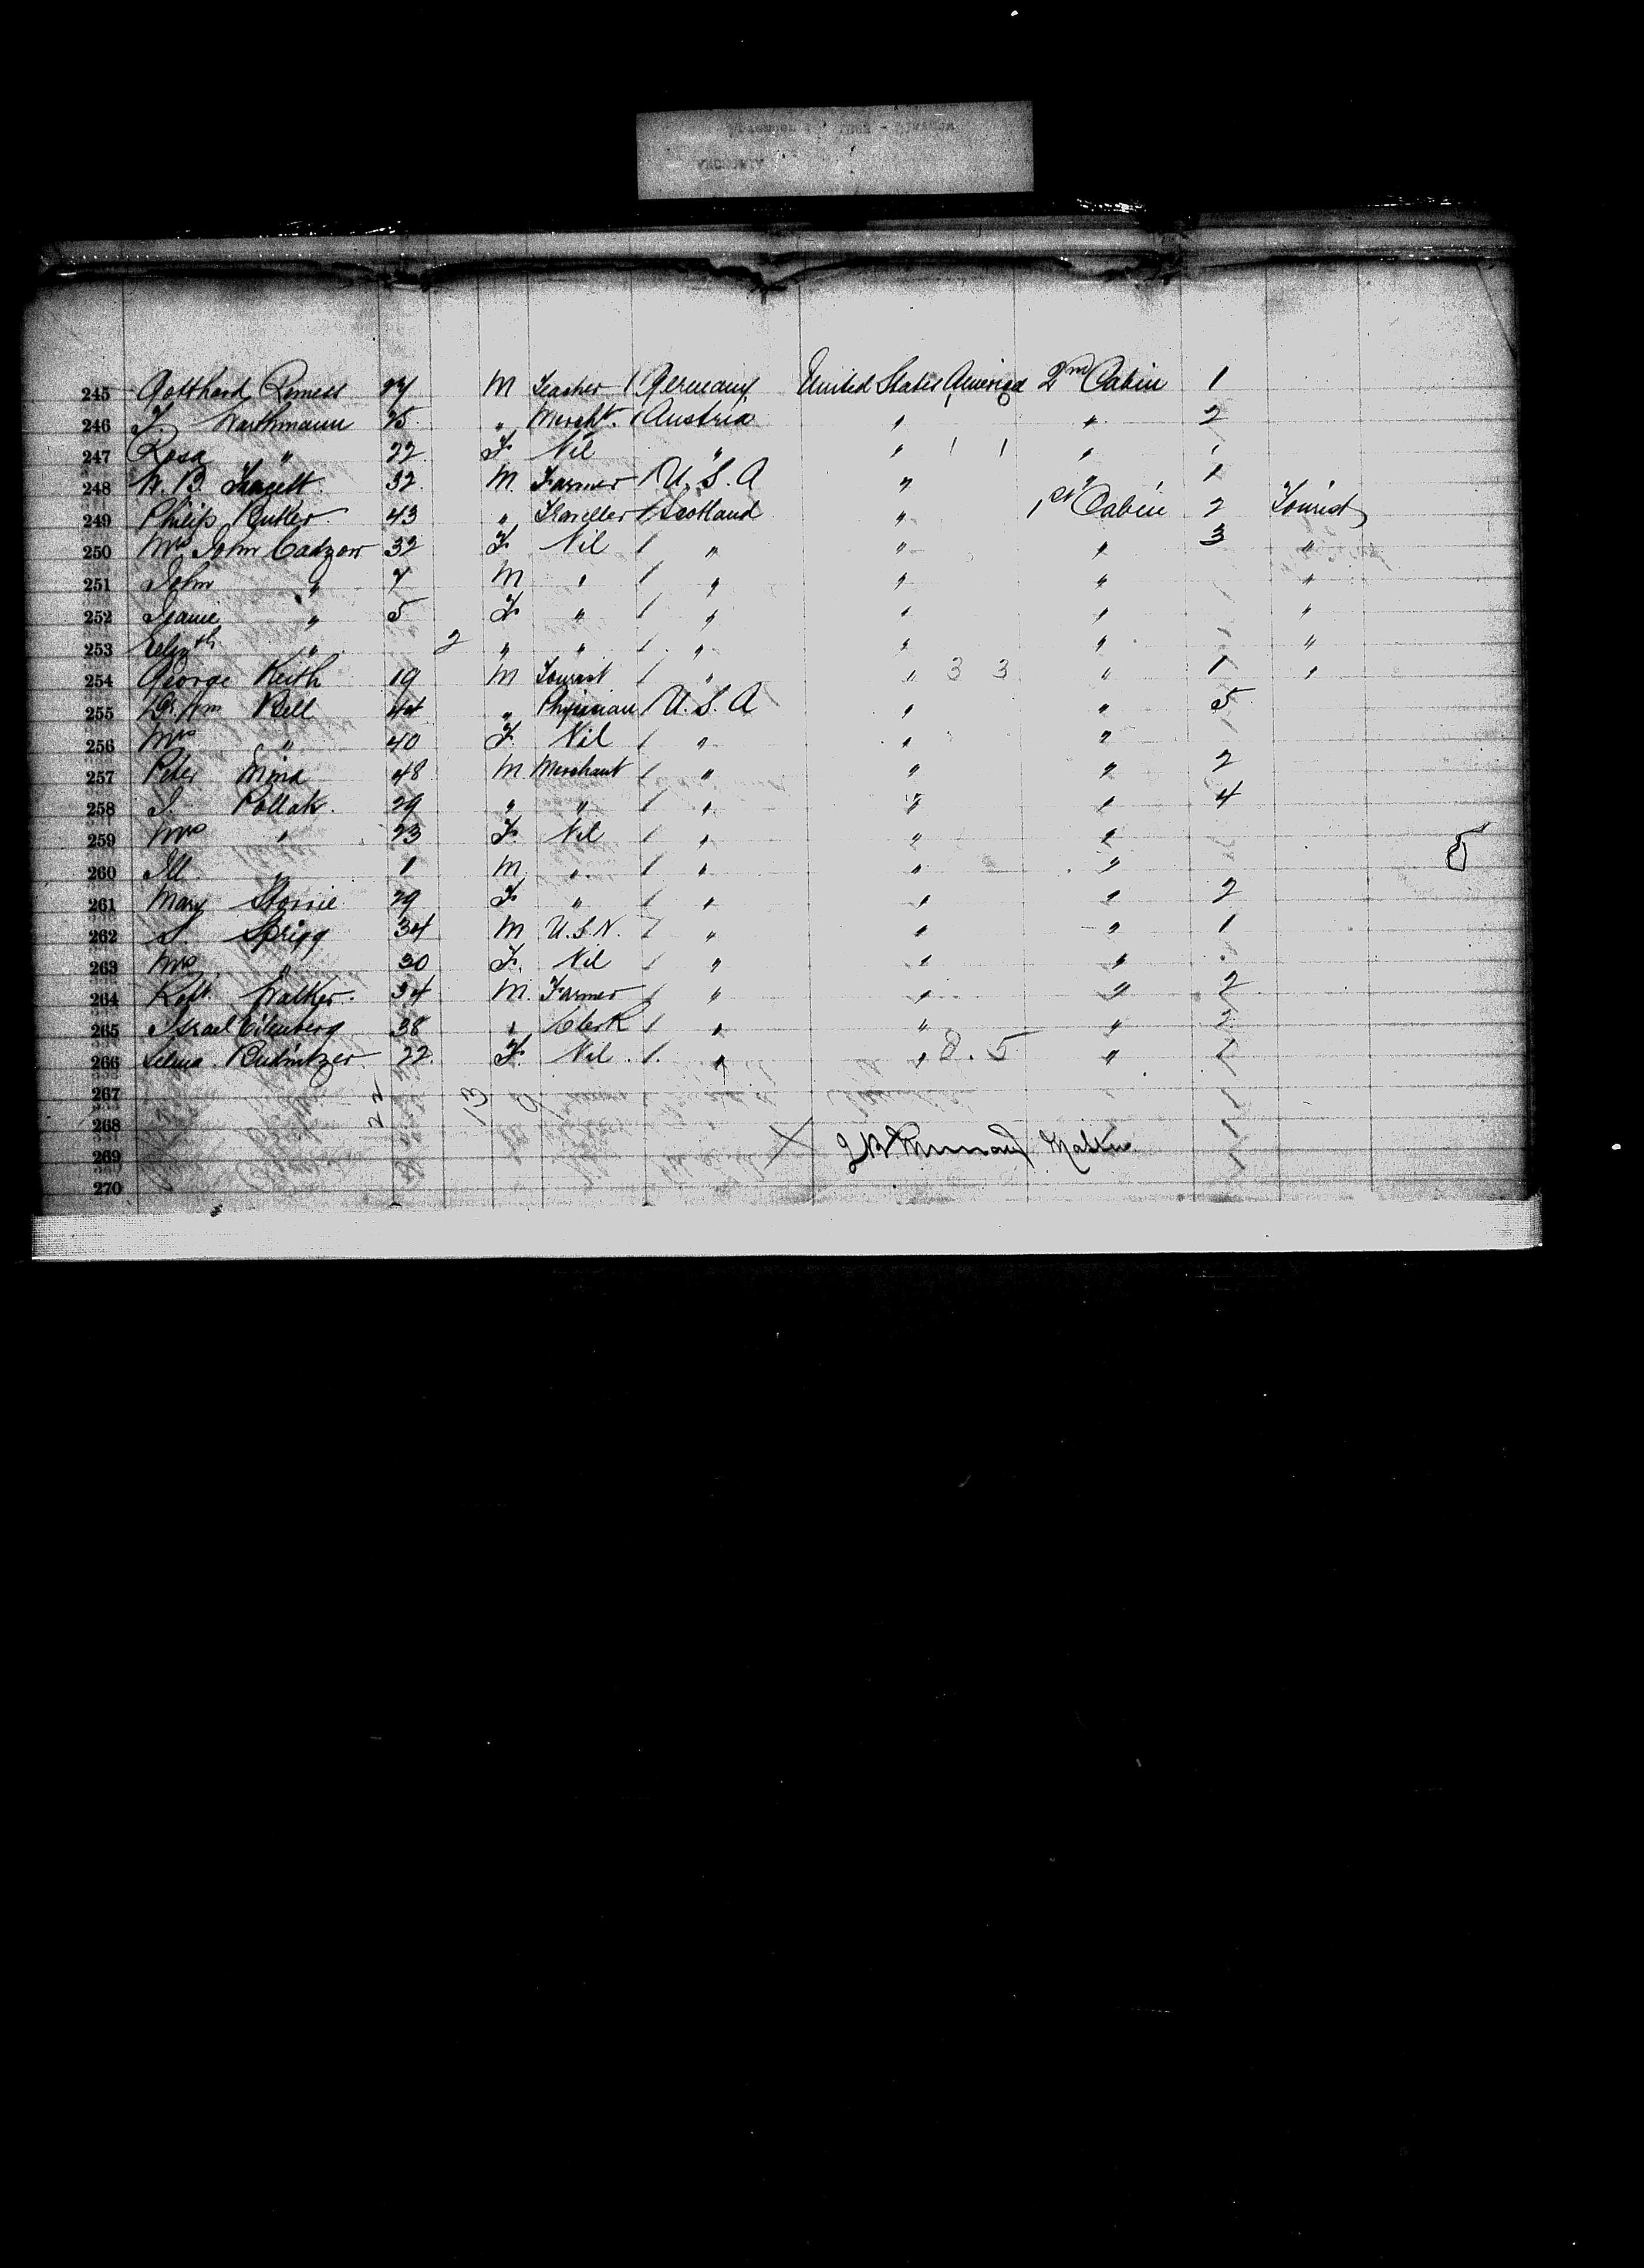 245 Gotthard 27 M Teacher 1 Germany United States America 2nd Cabin 1
246 Warthmann 25 " Mercht. 1 Austria " " 2
247 Rosa " 22 F Nil " " 1 1 "
248 W. B. 32 M. Farmer 1 U. S. A " " 1
249 Philip Butler 43 " Traveller 1 Scotland " 1st Cabin 2 Tourist
250 Mrs John Cadzow 32 F. Nil 1 " " " 3 "
251 John " 7 M " 1 " " " "
252 Jeanie " 5 F " 1 " " " "
253 Elizth " 2 " " 1 " " " "
254 George Keith 19 M Tourist 1 " " 3 3 " 1 "
255 Dr. Wm Bell 44 " Physician 1 U. S. A " " 5
256 Mrs " 40 F. Nil 1 " " "
257 Peter Mina 48 M Merchant 1 " " " 2
258 Pollak. 29 " " 1 " " " 4
259 Mrs " 23 F. Nil 1 " " "
260 " 1 M " 1 " " "
261 Mary Storrie 29 F " 1 " " " 2
262 S. Sprigg 34 M U.S.N. 1 " " " 1
263 Mrs " 30 F. Nil 1 " " "
264 Robt. Walker. 34 M. Farmer 1 " " " 2
265 Israel Eilenberg 38 " Clerk 1 " " " 2
266 Selma 22. F. Nil 1. " " 8.5 " 1
267 22 13
268
269 X Master
270